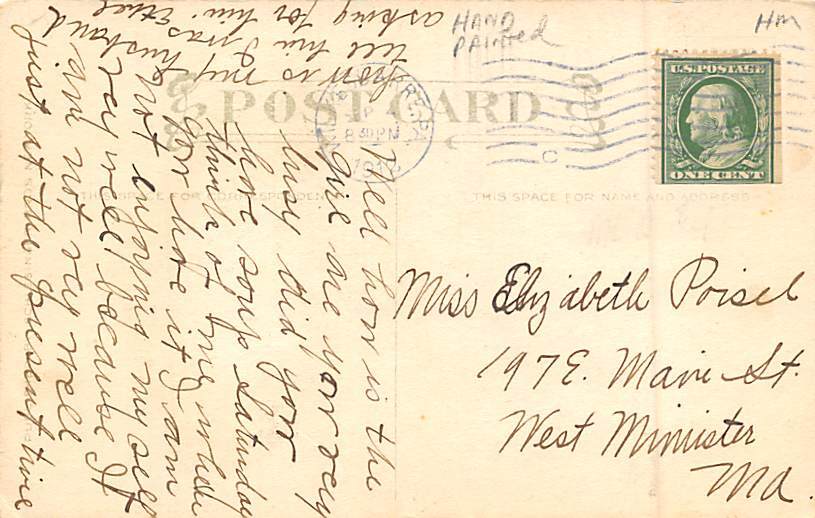 HAND
PAINTED
HM
POST CARD
THIS SPACE FOR CORRESPONDENCE
THIS SPACE FOR NAME AND ADDRESS
U.S. POSTAGE
ONE CENT
8 30 PM
C
Miss Elizabeth Poisel
197 E. Main St.
West Minister
Md.
Well how is the
girl are you very
busy did you
have soup Saturday
think of me when
you have it I am
not enjoying my self
very well because I
am not very well
just at the present time
how is my husband
tell him I was
asking for him. Ethel